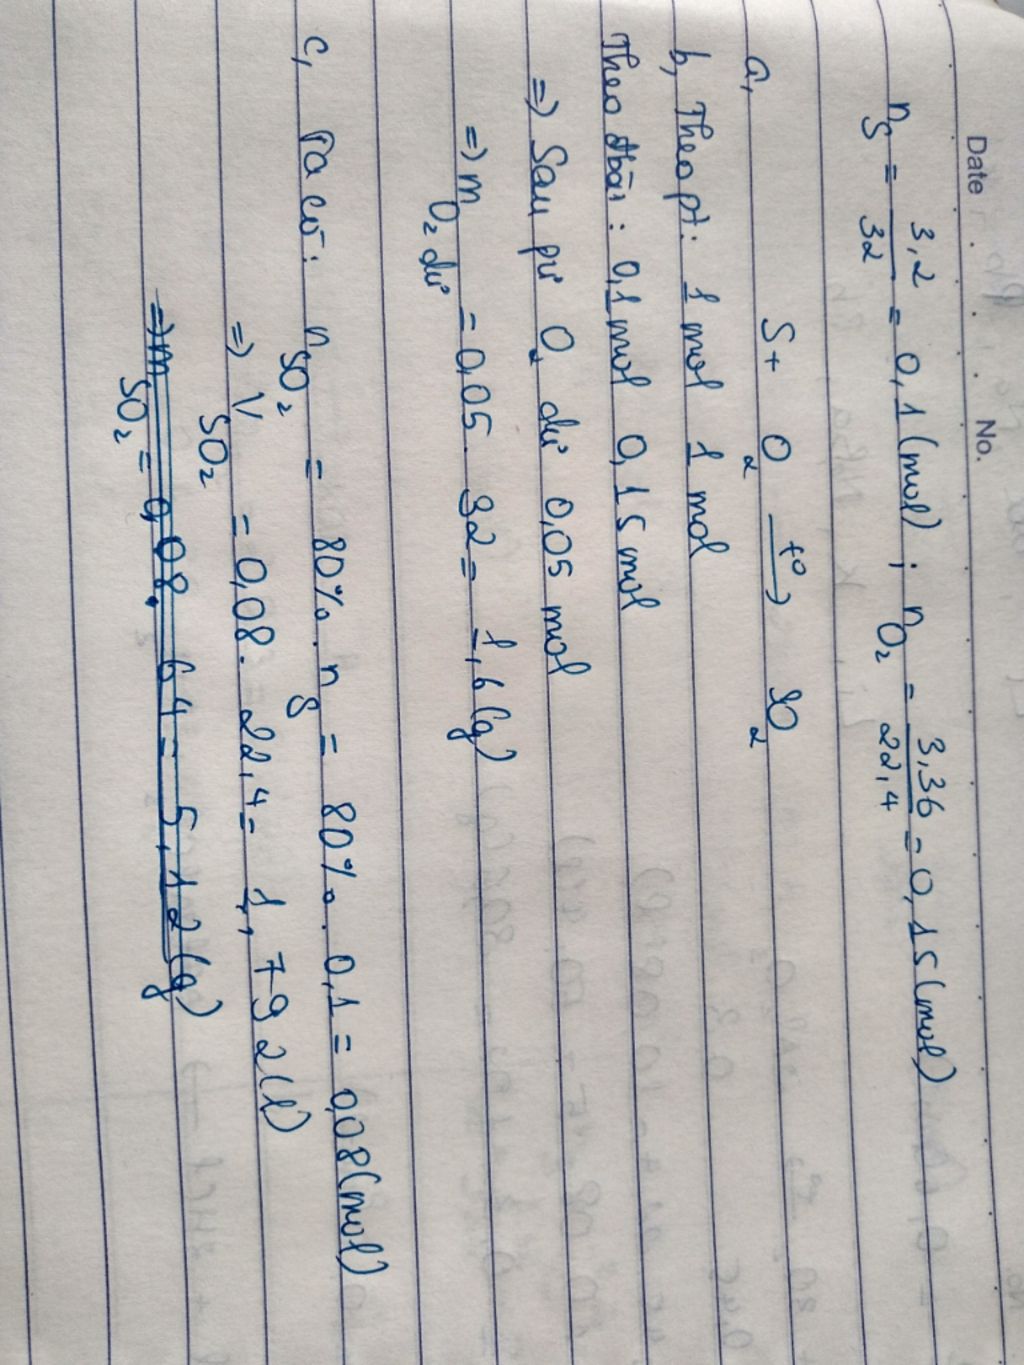 Date No.
nS = 3,2/32 = 0,1 (mol) ; nO2 = 3,36/22,4 = 0,15 (mol)
a, S + O2 t°→ SO2
b, Theo pt: 1 mol 1 mol
Theo đbài: 0,1 mol 0,15 mol
=> Sau pư O2 dư 0,05 mol
=> mO2 dư = 0,05. 32 = 1,6 (g)
c, Ta có: nSO2 = 80%. nS = 80%. 0,1 = 0,08 (mol)
=> VSO2 = 0,08. 22,4 = 1,792 (l)
=> mSO2 = 0,08. 64 = 5,12 (g)